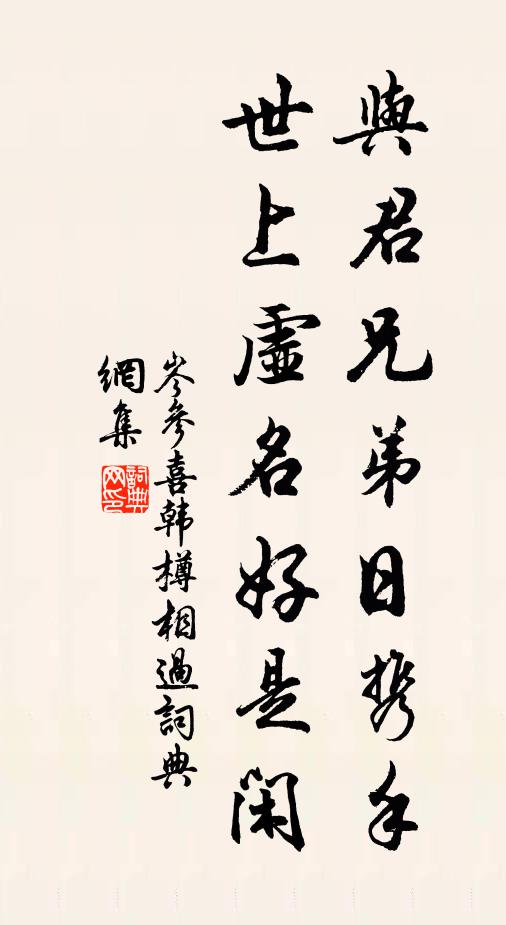 與君兄弟日携手
世上虛名好是閑
岑參喜韩樽相過詞典
網集
詞典網印